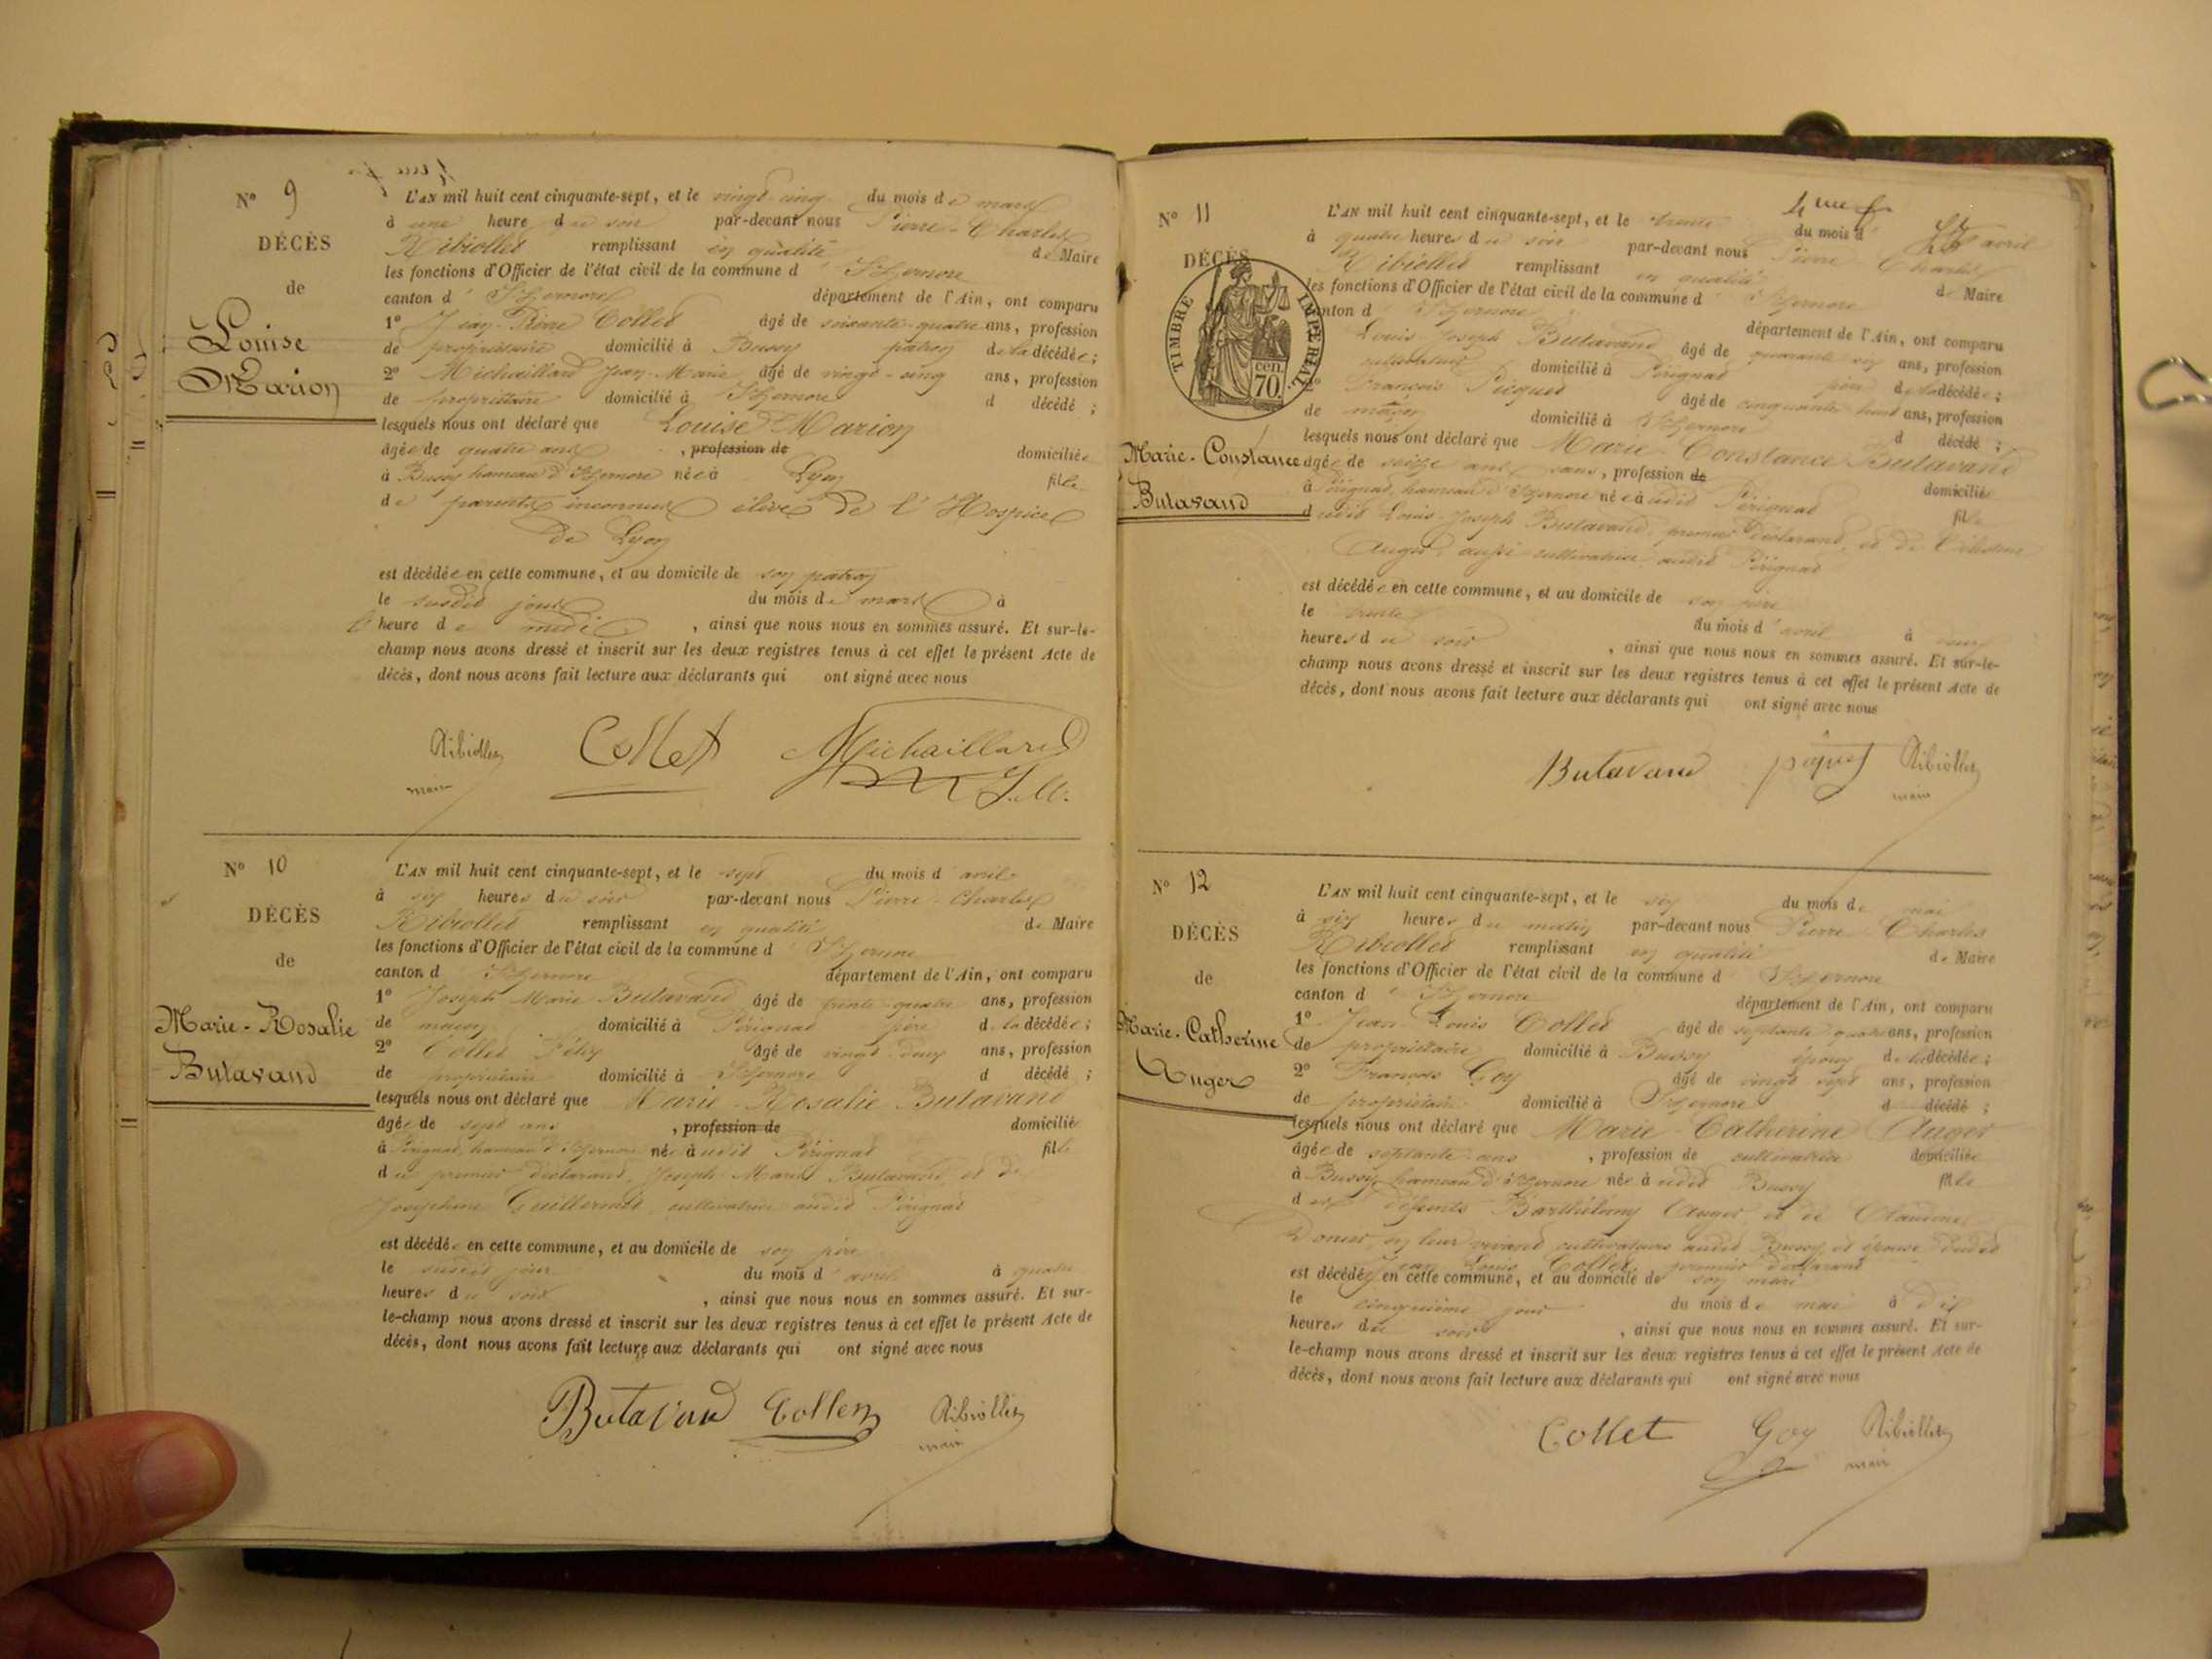 Nº 9
DÉCÈS
de
Louise
Marion
L'AN mil huit cent cinquante-sept, et le vingt-cinq du mois de mars
à une heure du soir par-devant nous Pierre-Charles
Ribiollet remplissant en qualité de Maire
les fonctions d'Officier de l'état civil de la commune d'Izernore
canton d'Izernore département de l'Ain, ont comparu
1º Jean-Pierre Collet âgé de soixante-quatre ans, profession
de propriétaire domicilié à Bussy patron de la décédée ;
2º Michaillard Jean-Marie âgé de vingt-cinq ans, profession
de propriétaire domicilié à Izernore d décédé ;
lesquels nous ont déclaré que Louise Marion
âgée de quatre ans , profession de domiciliée
à Bussy hameau d'Izernore née à Lyon fille
de parents inconnus élève de l'Hospice
de Lyon
est décédée en cette commune, et au domicile de son patron
le susdit jour du mois de mars à
heure de midi , ainsi que nous nous en sommes assuré. Et sur-le-
champ nous avons dressé et inscrit sur les deux registres tenus à cet effet le présent Acte de
décès, dont nous avons fait lecture aux déclarants qui ont signé avec nous
Ribiollet Collet Michaillard
maire J.M.
Nº 10
DÉCÈS
de
Marie-Rosalie
Butavand
L'AN mil huit cent cinquante-sept, et le sept du mois d'avril
à six heures du soir par-devant nous Pierre-Charles
Ribiollet remplissant en qualité de Maire
les fonctions d'Officier de l'état civil de la commune d'Izernore
canton d'Izernore département de l'Ain, ont comparu
1º Joseph Marie Butavand âgé de trente-quatre ans, profession
de maçon domicilié à Pérignat père de la décédée ;
2º Collet Félix âgé de vingt-deux ans, profession
de propriétaire domicilié à Izernore d décédé ;
lesquels nous ont déclaré que Marie-Rosalie Butavand
âgée de sept ans , profession de domiciliée
à Pérignat, hameau d'Izernore née à udit Pérignat fille
du premier déclarant, Joseph Marie Butavand, et de
Joséphine Guillermet, cultivatrice audit Pérignat
est décédée en cette commune, et au domicile de son père
le susdit jour du mois d'avril à quatre
heures du soir , ainsi que nous nous en sommes assuré. Et sur-
le-champ nous avons dressé et inscrit sur les deux registres tenus à cet effet le présent Acte de
décès, dont nous avons fait lecture aux déclarants qui ont signé avec nous
Butavand Collet Ribiollet
maire
Nº 11
DÉCÈS
TIMBRE IMPÉRIAL
cen.
70.
Marie-Constance
Butavand
L'AN mil huit cent cinquante-sept, et le trente du mois d'avril
à quatre heures du soir par-devant nous Pierre Charles
Ribiollet remplissant en qualité de Maire
les fonctions d'Officier de l'état civil de la commune d'Izernore
canton d'Izernore département de l'Ain, ont comparu
Louis Joseph Butavand âgé de quarante six ans, profession
cultivateur domicilié à Pérignat père de la décédée ;
François Picquet âgé de cinquante huit ans, profession
de maçon domicilié à Izernore d décédé ;
lesquels nous ont déclaré que Marie-Constance Butavand
âgée de seize ans sans, profession de domiciliée
à Pérignat, hameau d'Izernore née à udit Pérignat fille
dudit Louis-Joseph Butavand, premier déclarant, et de
Auger, aussi cultivatrice audit Pérignat
est décédée en cette commune, et au domicile de son père
le trente du mois d'avril à
heures du soir , ainsi que nous nous en sommes assuré. Et sur-le-
champ nous avons dressé et inscrit sur les deux registres tenus à cet effet le présent Acte de
décès, dont nous avons fait lecture aux déclarants qui ont signé avec nous
Butavand piquet Ribiollet
maire
Nº 12
DÉCÈS
de
Marie-Catherine
Auger
L'AN mil huit cent cinquante-sept, et le six du mois de mai
à six heures du matin par-devant nous Pierre Charles
Ribiollet remplissant en qualité de Maire
les fonctions d'Officier de l'état civil de la commune d'Izernore
canton d'Izernore département de l'Ain, ont comparu
1º Jean-Louis Collet âgé de septante quatre ans, profession
de propriétaire domicilié à Bussy époux de la décédée ;
2º François Goy âgé de vingt sept ans, profession
de propriétaire domicilié à Izernore d décédé ;
lesquels nous ont déclaré que Marie-Catherine Auger
âgée de septante ans , profession de cultivatrice domiciliée
à Bussy, hameau d'Izernore née à udit Bussy fille
des défunts Barthélemy Auger et de Claudine
en leur vivant cultivateurs audit Bussy, et épouse dudit
Jean Louis Collet, premier déclarant
est décédée en cette commune, et au domicile de son mari
le cinquième jour du mois de mai à dix
heures du soir , ainsi que nous nous en sommes assuré. Et sur-
le-champ nous avons dressé et inscrit sur les deux registres tenus à cet effet le présent Acte de
décès, dont nous avons fait lecture aux déclarants qui ont signé avec nous
Collet Goy Ribiollet
maire